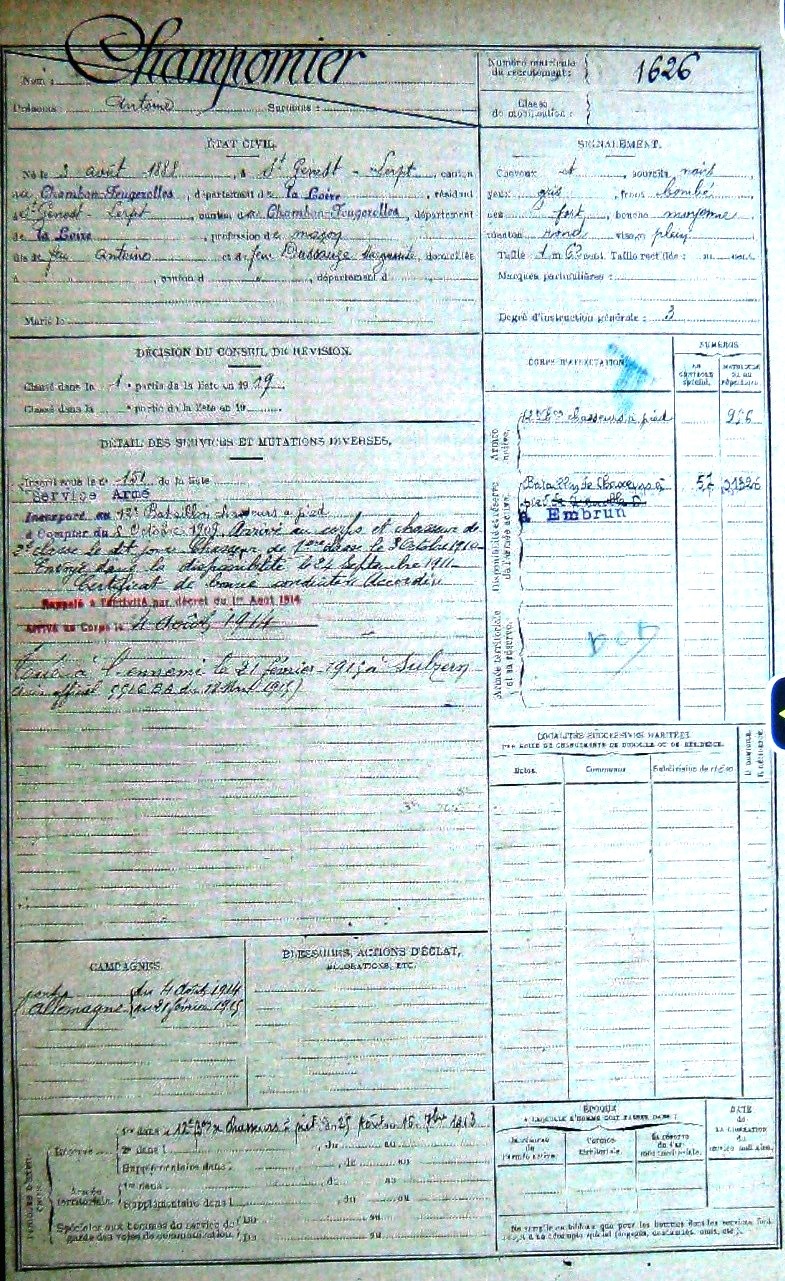 Nom : Champoinier
Prénoms : Antoine Surnoms :
Numéro matricule du recrutement : 1626
Classe de mobilisation :
ÉTAT CIVIL.
Né le 3 août 1888, à St Genest-Lerpt, canton
du Chambon-Feugerolles, département de la Loire, résidant
à St Genest-Lerpt, canton du Chambon-Feugerolles, département
de la Loire, profession de maçon
fils de feu Antoine et de feu, domiciliés
à, canton d, département d
Marié le
SIGNALEMENT.
Cheveux et sourcils noirs
yeux gris, front bombé
nez fort, bouche moyenne
menton rond visage plein
Taille 1 m. 63 cent. Taille rectifiée : m. cent.
Marques particulières :
Degré d'instruction générale : 3
DÉCISION DU CONSEIL DE RÉVISION.
Classé dans la 1e partie de la liste en 1909.
Classé dans la e partie de la liste en 19
CORPS D'AFFECTATION.
NUMÉROS
AU CONTRÔLE spécial.
MATRICULE OU AU répertoire.
Armée active.
12e Bon chasseurs à pied
Disponibilité et réserve de l'armée active.
Bataillon de Chasseurs à
pied
à Embrun
Armée territoriale et sa réserve.
DÉTAIL DES SERVICES ET MUTATIONS DIVERSES.
Inscrit sous le no 151 de la liste
Service Armé
Incorporé au 12e Bataillon chasseurs à pied
à Compter du Octobre 1909. Arrivé au corps et chasseur de
2e classe le dit jour. Chasseur de 1ère classe le 3 Octobre 1910
Envoyé dans la disponibilité le 24 Septembre 1911
Certificat de bonne conduite Accordé
Rappelé à l'activité par décret du 1er Août 1914
Arrivé au Corps le 4 Août 1914
Tué à l'ennemi le 21 février 1915 à Sulzern
LOCALITÉS SUCCESSIVES HABITÉES
PAR SUITE DE CHANGEMENTS DE DOMICILE OU DE RÉSIDENCE.
Dates. Communes. Subdivision de région.
D. DOMICILE. R. RÉSIDENCE.
CAMPAGNES.
Allemagne du 4 Août 1914
au 21 février 1915
BLESSURES, ACTIONS D'ÉCLAT,
DÉCORATIONS, ETC.
1re dans le 12e Bon Chasseurs à pied du 25 Août au 16 7bre 1913
2e dans l, du au
Supplémentaire dans l, du au
Armée territoriale
1re dans l, du au
Supplémentaire dans l, du au
Spéciales aux hommes du service de garde des voies de communication. Du au
Du au
ÉPOQUE
À LAQUELLE L'HOMME DOIT PASSER DANS :
la réserve de l'armée active.
l'armée territoriale.
la réserve de l'armée territoriale.
DATE
de
LA LIBÉRATION
du
service militaire.